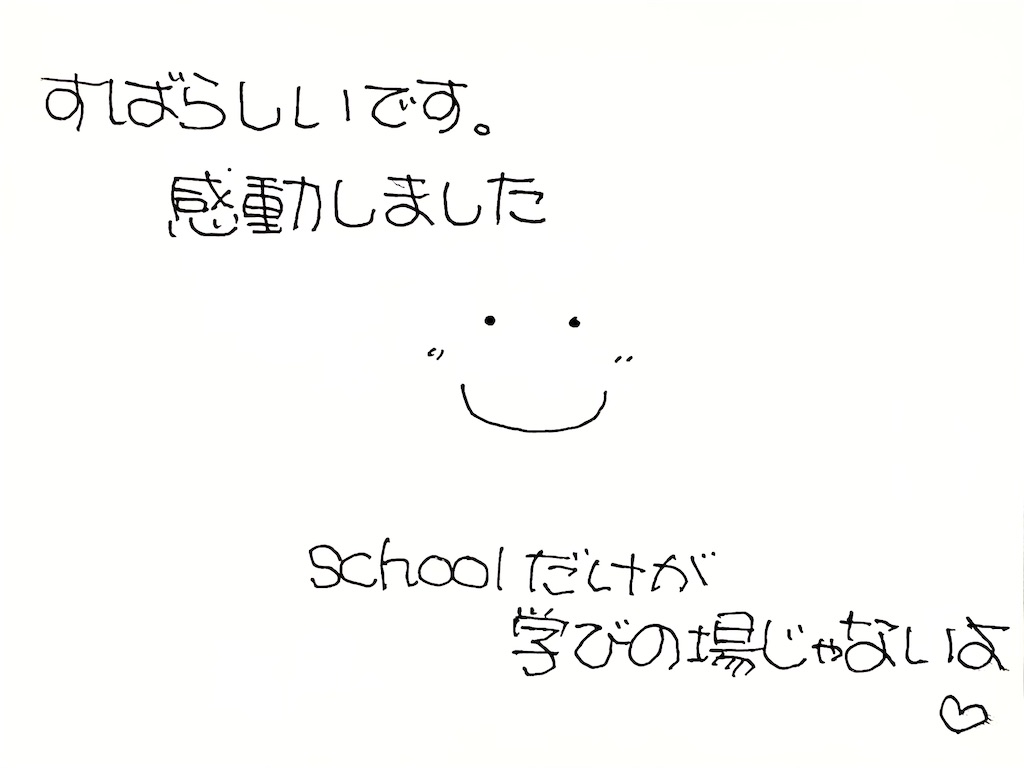 すばらしいです。
感動しました
schoolだけが
学びの場じゃないよ
♡